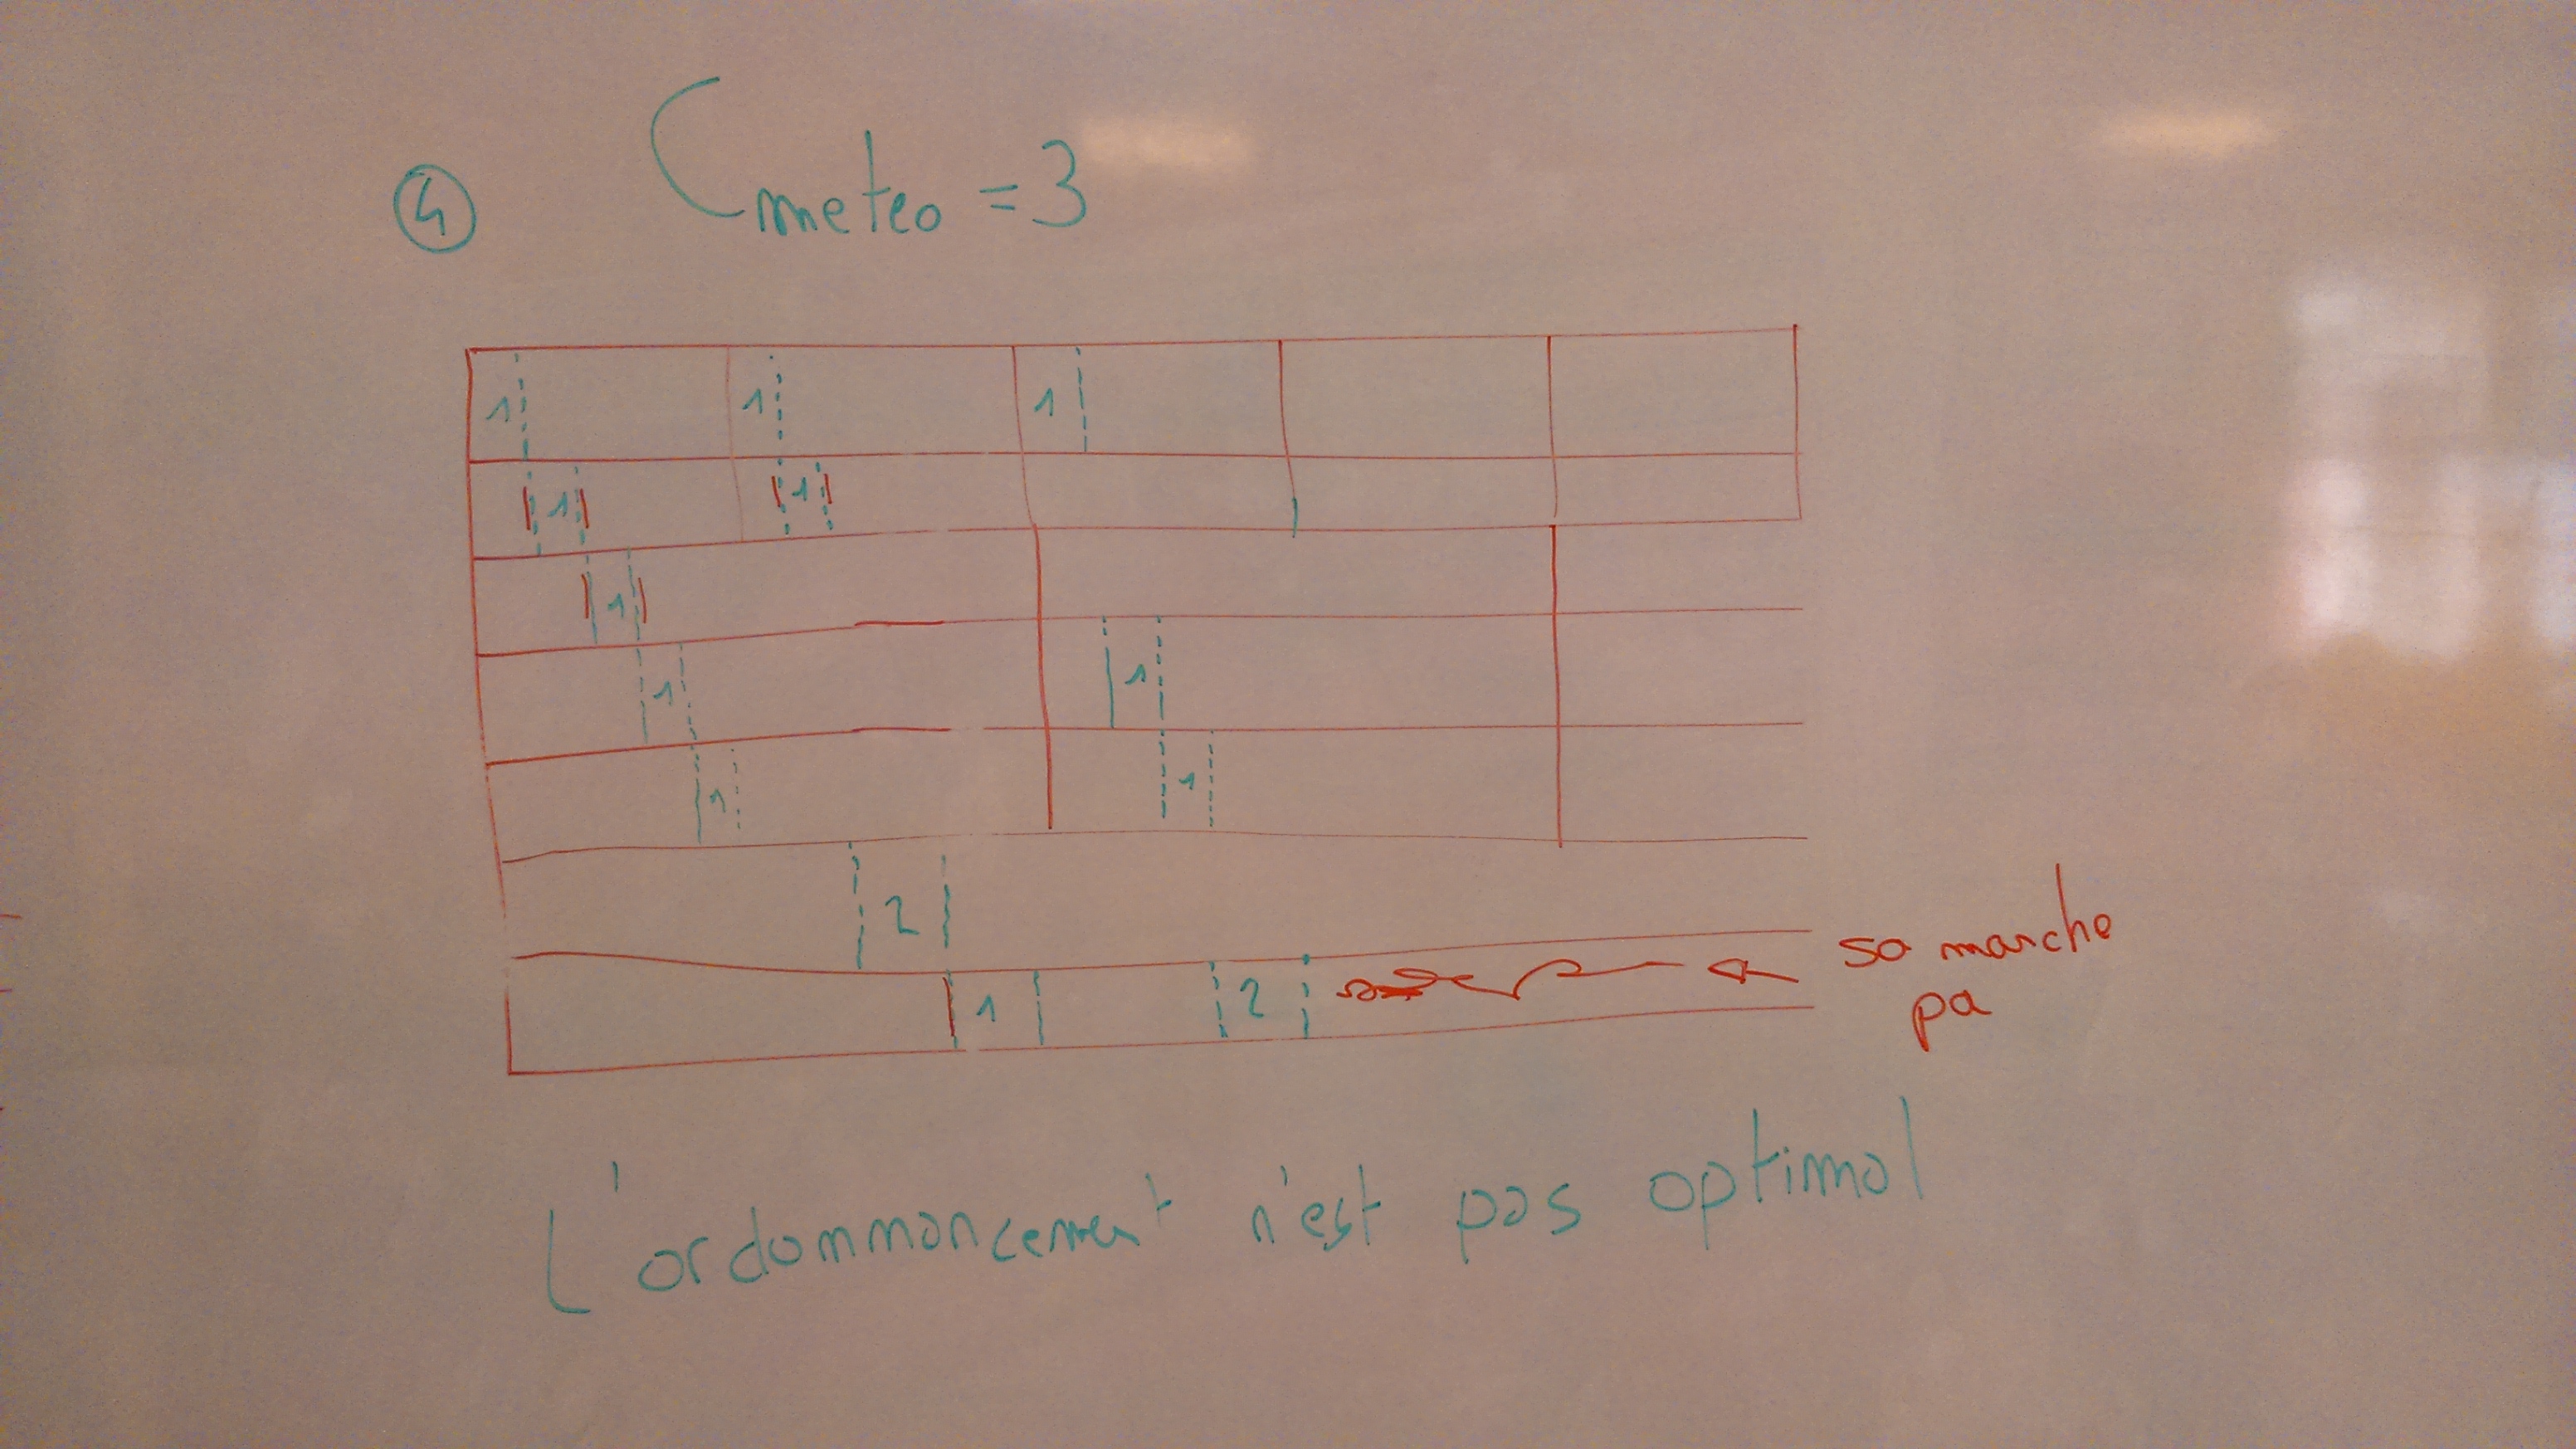 4 Cmeteo = 3
1 1 1
1 1
1
1 1
1 1
2
1 2
sa marche
pa
l'ordonnancement n'est pas optimal